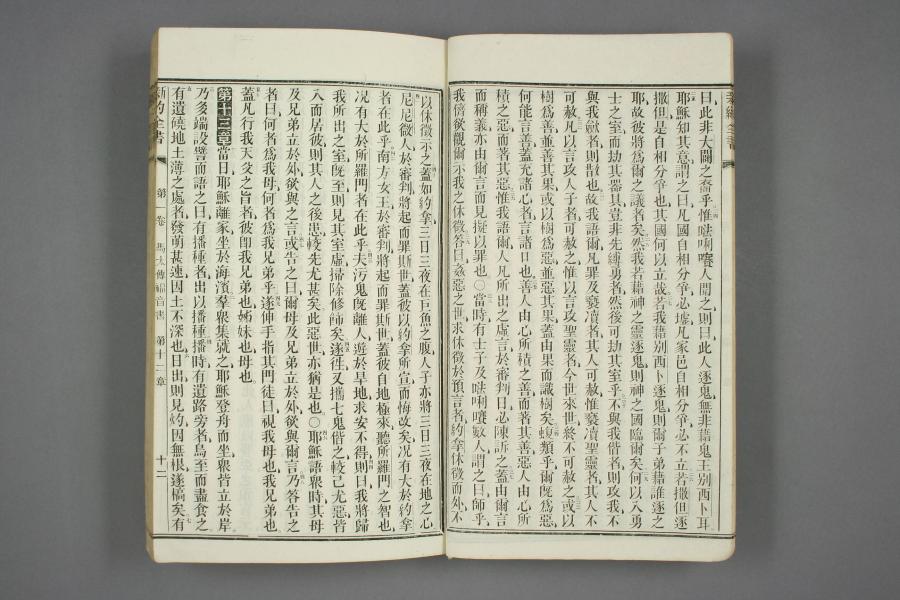 新約全書
曰此非大闢之裔乎惟𠵽唎㘔人聞之則曰此人逐鬼無非藉鬼王別西卜耳
耶穌知其意謂之曰凡國自相分爭必墟凡家邑自相分爭必不立若撒但逐
撒但是自相分爭也其國何以立哉若我藉別西卜逐鬼則爾子弟藉誰逐之
耶故彼將爲爾之議者矣然我若藉神之靈逐鬼則神之國臨爾矣何以入勇
士之室而劫其器具豈非先縛勇者然後可劫其室乎不與我偕者則攻我不
與我歛者則散也故我語爾凡罪及褻凟者其人可赦惟褻凟聖靈者其人不
可赦凡以言攻人子者可赦之惟以言攻聖靈者今世來世終不可赦之或以
樹爲善並善其果或以樹爲惡並惡其果蓋由果而識樹矣蝮類乎爾旣爲惡
何能言善蓋充諸心者言諸口也善人由心所積之善而著其善惡人由心所
積之惡而著其惡惟我語爾人凡所出之虛言於審判日必陳訴之蓋由爾言
而稱義亦由爾言而見擬以罪也○當時有士子及𠵽唎㘔數人謂之曰師乎
我儕欲觀爾示我之休徵答曰姦惡之世求休徵於預言者約拿休徵而外不
以休徵示之蓋如約拿三日三夜在巨魚之腹人子亦將三日三夜在地之心
尼尼微人於審判將起而罪斯世蓋彼以約拿所宣而悔改矣况有大於約拿
者在此乎南方女王於審判將起而罪斯世蓋彼自地極來聽所羅門之智也
况有大於所羅門者在此乎夫污鬼旣離人遊於旱地求安不得則曰我將歸
我所出之室旣至則見其室虛掃除修飾矣遂徃又攜七鬼偕之較己尤惡皆
入而居彼則其人之後患較先尤甚矣此惡世亦猶是也○耶穌語眾時其母
及兄弟立於外欲與之言或告之曰爾母及兄弟立於外欲與爾言乃答告之
者曰何者爲我母何者爲我兄弟乎遂伸手指其門徒曰視我母也我兄弟也
蓋凡行我天父之旨者彼卽我兄弟也姊妹也母也
第十三章當日耶穌離家坐於海濱羣眾集就之耶穌登舟而坐眾皆立於岸
乃多端設譬而語之曰有播種者出以播種播時有遺路旁者鳥至而盡食之
有遺磽地土薄之處者發萌甚速因土不深也日出則見灼因無根遂槁矣有
新約全書 第一卷 馬太傳福音書 第十二章 十二